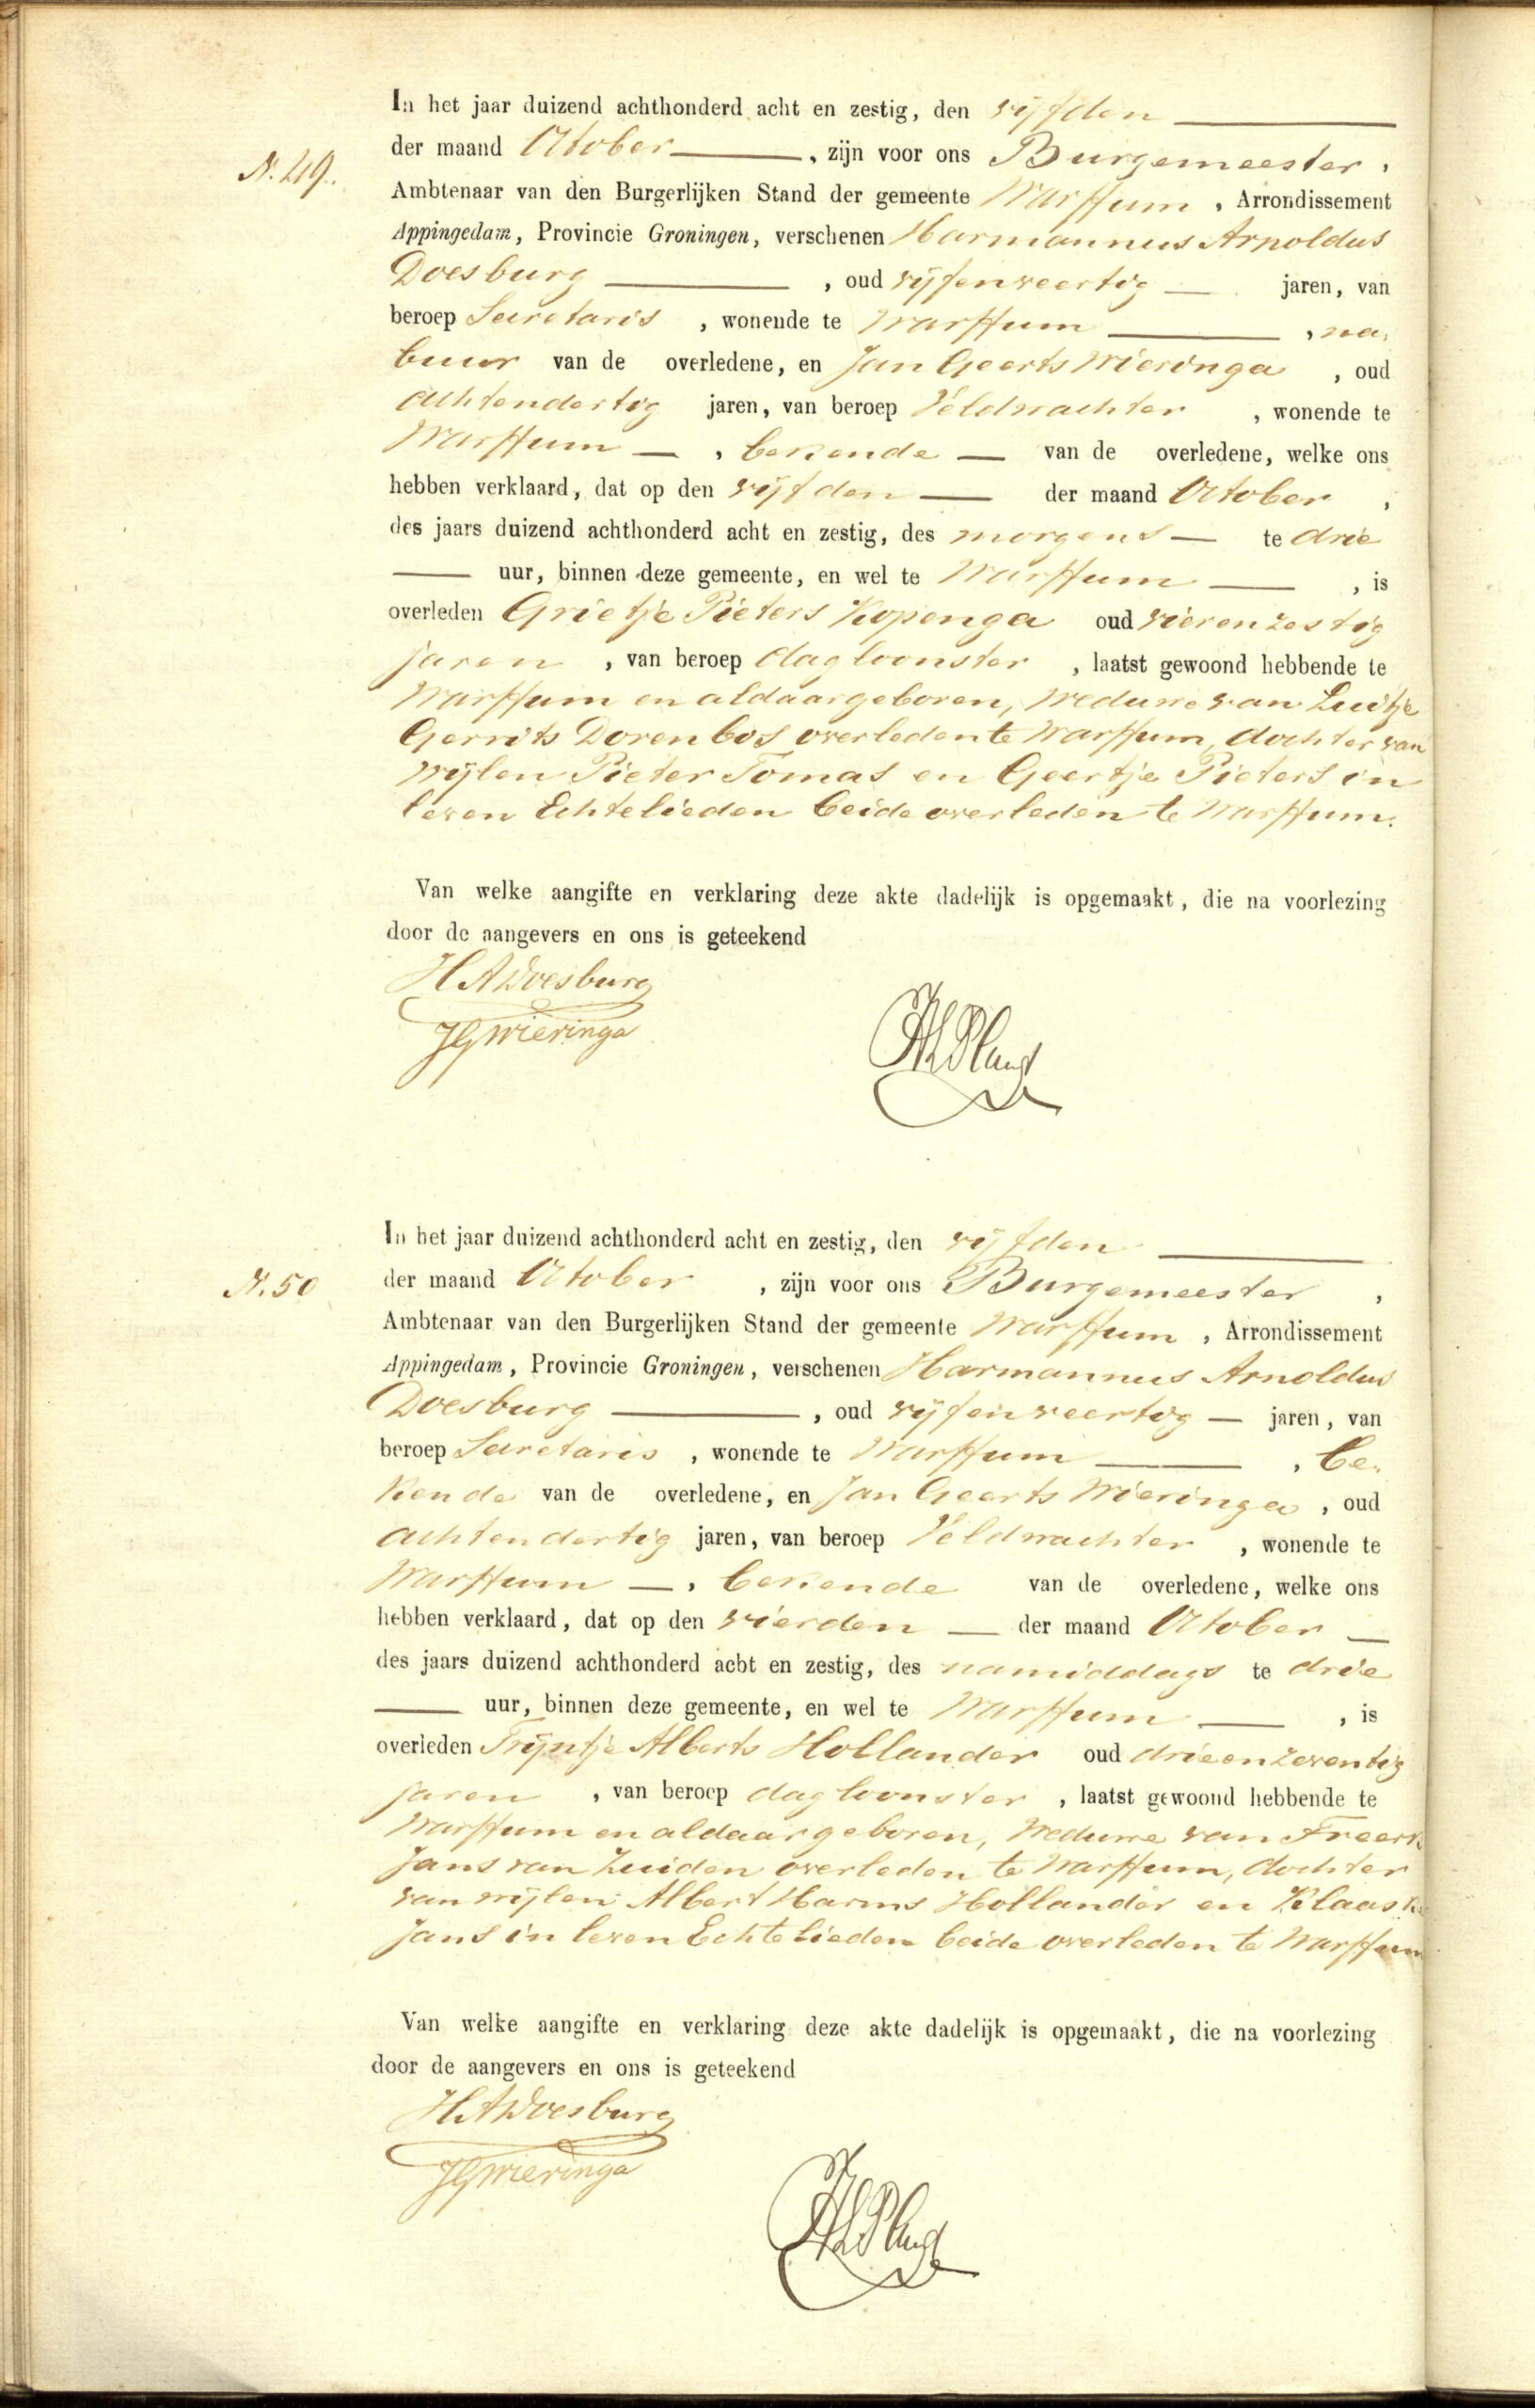 In het jaar duizend achthonderd acht en zestig, den vijfden
N. 49. der maand October , zijn voor ons Burgemeester ,
Ambtenaar van den Burgerlijken Stand der gemeente Warffum , Arrondissement
Appingedam, Provincie Groningen, verschenen Harmannus Arnoldus
Doesburg , oud vijfenveertig jaren, van
beroep Secretaris , wonende te Warffum , na,
buur van de overledene, en Jan Geerts Wieringa , oud
achtendertig jaren, van beroep Veldwachter , wonende te
Warffum , bekende van de overledene, welke ons
hebben verklaard, dat op den vijfden der maand October ,
des jaars duizend achthonderd acht en zestig, des morgens te drie
uur, binnen deze gemeente, en wel te Warffum , is
overleden Grietje Pieters Kopenga oud vierenzestig
jaren , van beroep dagloonster , laatst gewoond hebbende te
Warffum en aldaar geboren, Weduwe van Luitje
Gerrits Dorenbos overleden te Warffum, dochter van
wijlen Pieter Tomas en Geertje Pieters in
leven Echtelieden beide overleden te Warffum.
Van welke aangifte en verklaring deze akte dadelijk is opgemaakt, die na voorlezing
door de aangevers en ons is geteekend
HADoesburg
JGWieringa
In het jaar duizend achthonderd acht en zestig, den vijfden
N. 50 der maand October , zijn voor ons Burgemeester ,
Ambtenaar van den Burgerlijken Stand der gemeente Warffum , Arrondissement
Appingedam, Provincie Groningen, verschenen Harmannus Arnoldus
Doesburg , oud vijfenveertig jaren, van
beroep Secretaris , wonende te Warffum , be,
kende van de overledene, en Jan Geerts Wieringa , oud
achtendertig jaren, van beroep Veldwachter , wonende te
Warffum , bekende van de overledene, welke ons
hebben verklaard, dat op den vierden der maand October
des jaars duizend achthonderd acht en zestig, des namiddags te drie
uur, binnen deze gemeente, en wel te Warffum , is
overleden Trijntje Alberts Hollander oud drieenzeventig
jaren , van beroep dagloonster , laatst gewoond hebbende te
Warffum en aldaar geboren, Weduwe van Freerk
Jans van Zuiden overleden te Warffum, dochter
van wijlen Albert Harms Hollander en Klaaske
Jans in leven Echtelieden beide overleden te Warffum
Van welke aangifte en verklaring deze akte dadelijk is opgemaakt, die na voorlezing
door de aangevers en ons is geteekend
HADoesburg
JGWieringa